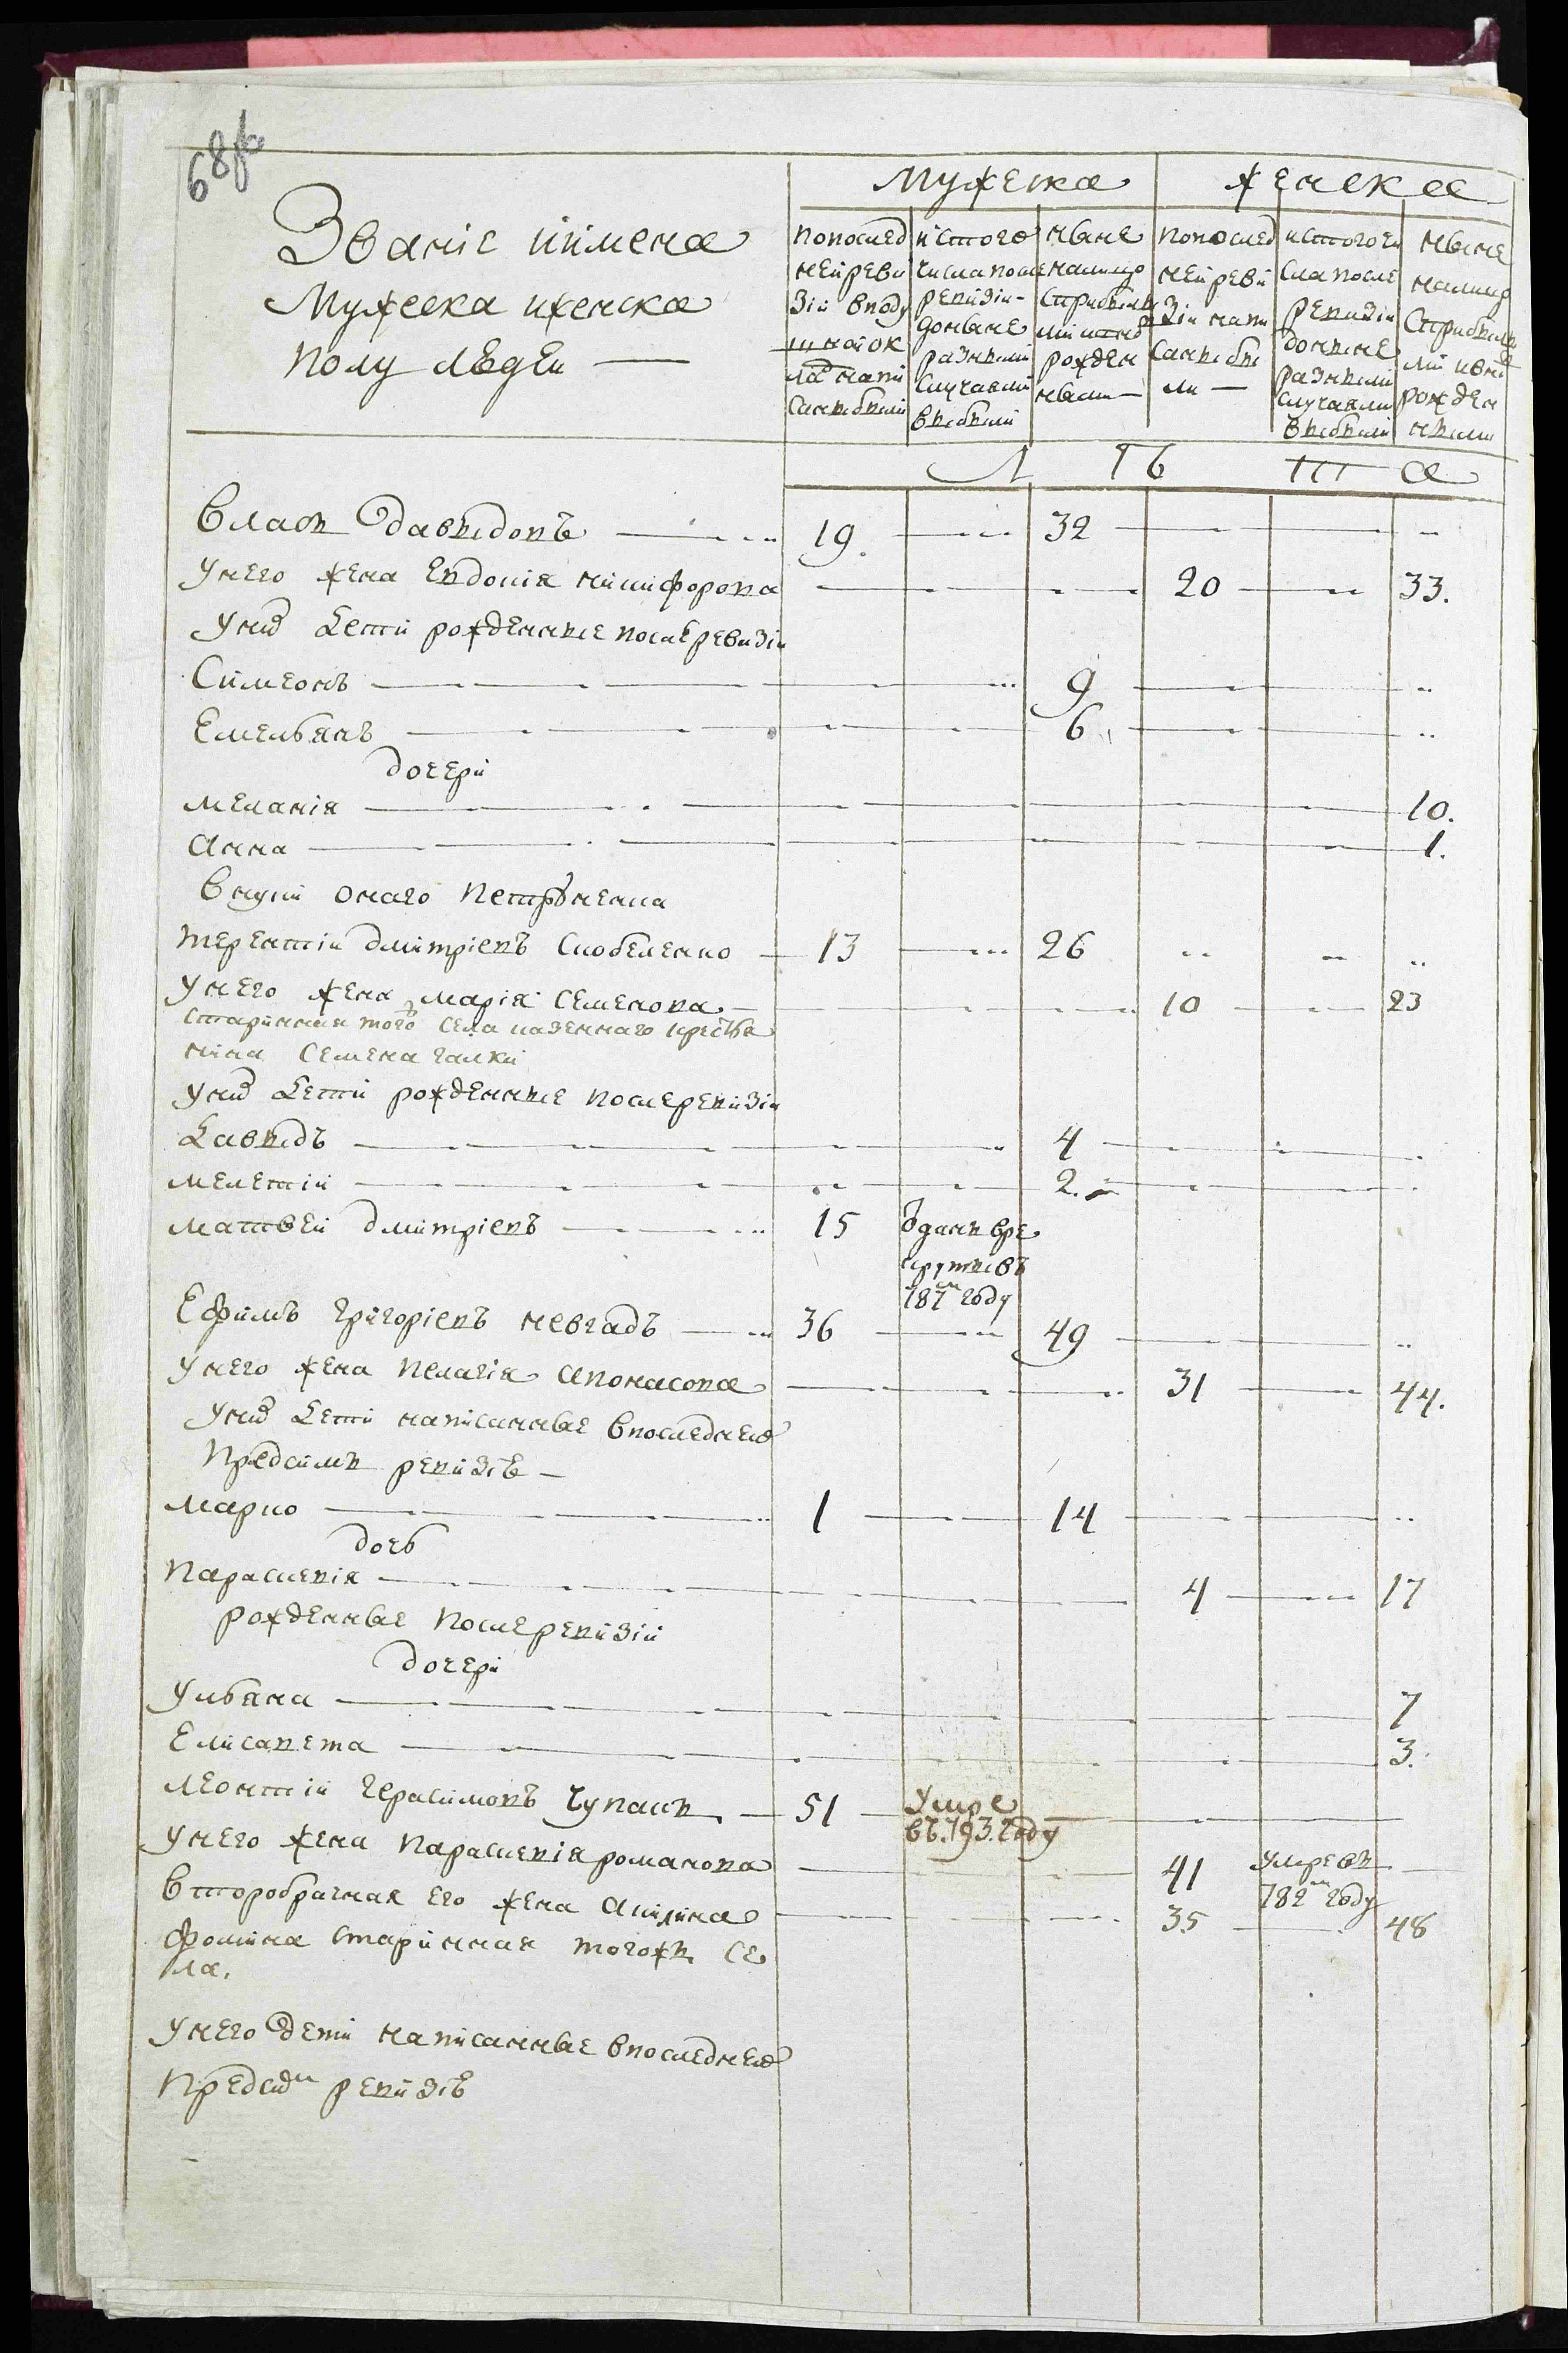 68
Званіе иимена
Мужеска иженска
полу людеи —
Мужеска
женска
попослед
неиреви
зіи вподу
шноиок
ладнапи
санныи
истого
числапосле
ревизіи
доныне
разными
случаями
выбыли
ныне
налицо
сприбылы
ми
рожден
ными
попослед
неиреви
зіи напи
санныи
ли —
истогочи
сла после
ревизіи
доныне
разными
случаями
выбыли
ныне
налицо
сприбылы
ми
рожден
ными
Л Ѣ Т а
Власъ Давыдовъ 19. 32
унего жена Евдокія никифорова 20 33.
уних дети рожденные послеревизіи
Симеонъ 9
Емельянъ 6
дочери
меланія 10.
анна 1.
внуки онаго
терентіи дмитріевъ 13 26
унего жена марія семенова 10 23
старинная того села казеннаго крестья
нина семена галки
уних дети рожденные послеревизіи
Давыдъ 4
мелетіи 2.
матвеи дмитріевъ 15 оданъ вре
круты въ
787м году
Ефимъ григоріевъ 36 49
унего жена пелагія апонасова 31 44.
уних дети написанные впоследнеи
предсимъ ревизіе —
марко 1 14
дочь
параскевія 4 17
рожденные послеревизіи
дочери
ульяна 7
Елисавета 3.
леонтіи герасимовъ Чупакъ 51 Умре
въ.793.году
унего жена параскевія романова 41 умре въ
782м году
второбрачная его жена акилина 35 48
фомина старинная тогожъ се
ла.
унего дети написанные впоследнеи
предсим ревизіе